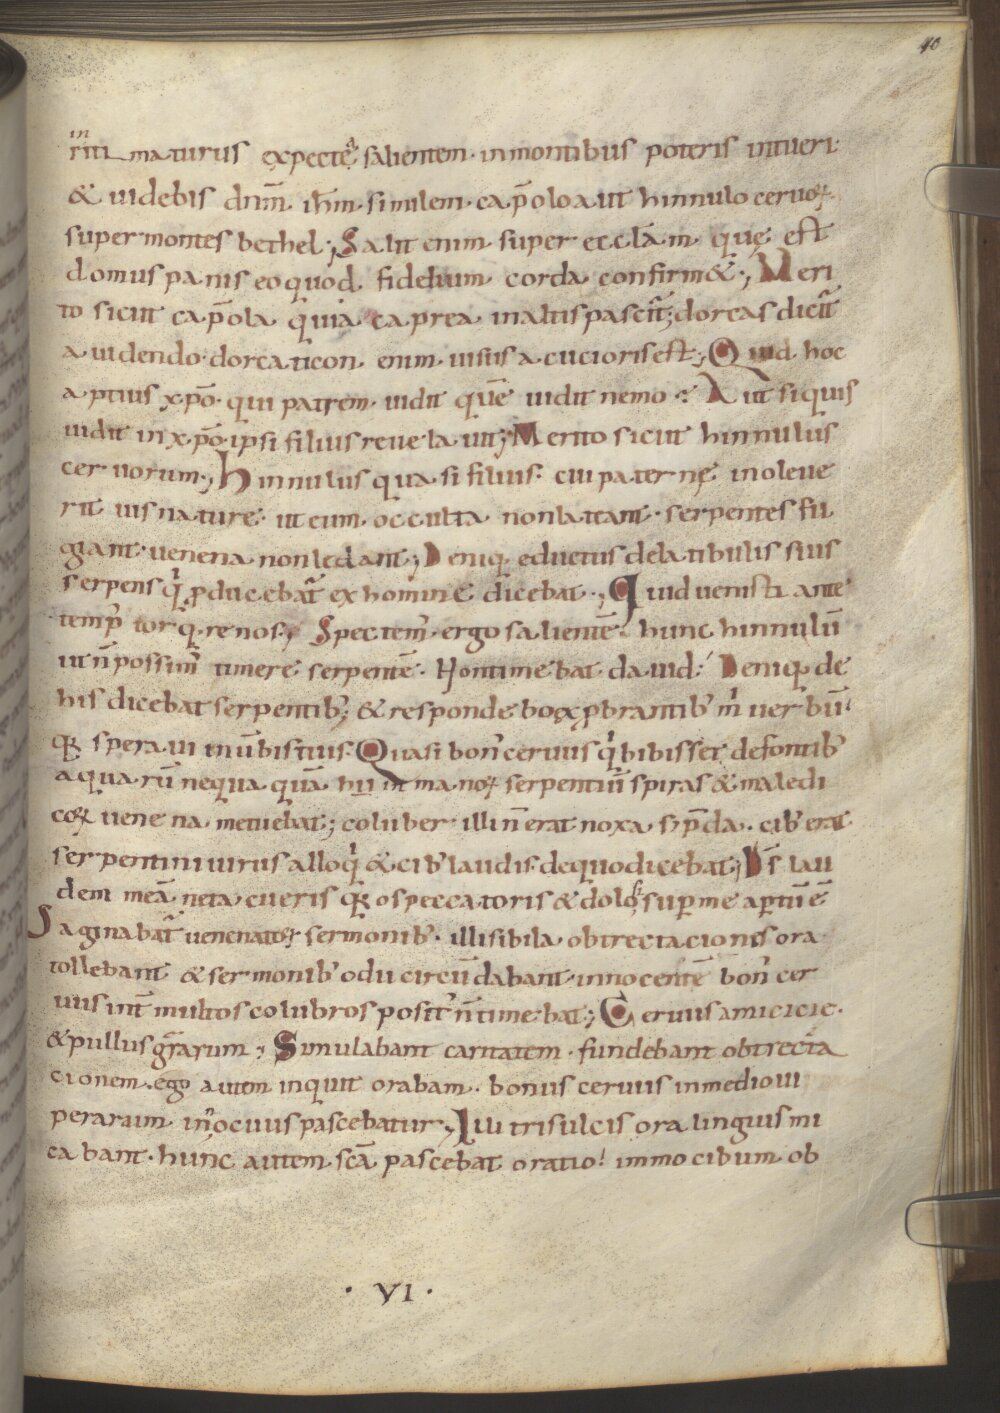 40
in
riti maturus expectę salientem · in montibus poteris intueri·
& uidebis dnm̄ ih̄m · similem · cap̄olo aut hinnulo ceruoꝝ·
super montes bethel; Salit enim super eccl̄am quę est
domus panis eo quod fidelium corda confirm&·; Meri
to sicut cap̄ola quia caprea in altis pascit̄; dorcas dicit̄
a uidendo· dorcaticon enim uisus acucioris est; Quid hoc
aptius xp̄o· qui patrem uidit quē uidit nemo ·: Aut si quis
uidit in xp̄o· ipsi filius reuelauit; Merito sicut hinnulus
ceruorum·; Hinnulus quasi filius· cui paternę inoleue
rit uis naturę· ut eum occulta non lateant· serpentes fu
giant· uenena non ledant; Deniq; eductus de latibulis suis
serpens q' p̱ducebat̄ ex homine dicebat·; Quid uenisti ante
temp' torq̱re nos; Spectem' ergo salientē· hunc hinnulū
ut n̄ possim' timere serpentē· Non timebat dauid· Deniq; de
his dicebat serpentib'; & respondebo exp̱brantib' m' uerbū·
qꝫ speraui in uerbis tuis· Quasi bon' ceruus q' bibisset de fontib'
aquarū nequaquā hii inmanoꝝ serpentiū spiras & maledi
coꝝ uenena metuebat; coluber illi n̄ erat noxa s; p̄da· cib' erat
serpentini uirus alloq' & cib' laudis· de quo dicebat; Ds̄ lau
dem meā ne tacueris qꝫ os peccatoris & dolosi sup̱ me ap̱tū ē
Saginabat̄ uenenatoꝝ sermonib'· illi sibila obtrectacionis ora
tollebant & sermonib' odii circū dabant· innocentē bon' cer
uus int̄ multos colubros posit' n̄ timebat; Ceruus amicicię·
& pullus gr̄arum; Simulabant caritatem· fundebant obtrecta
cionem· ego autem inquit orabam· bonus ceruus in medio ui
perarum innocuus pascebatur; Illi trisulcis ora linguis mi
cabant· hunc autem scā pascebat oratio! immo cibum ob
· VI ·